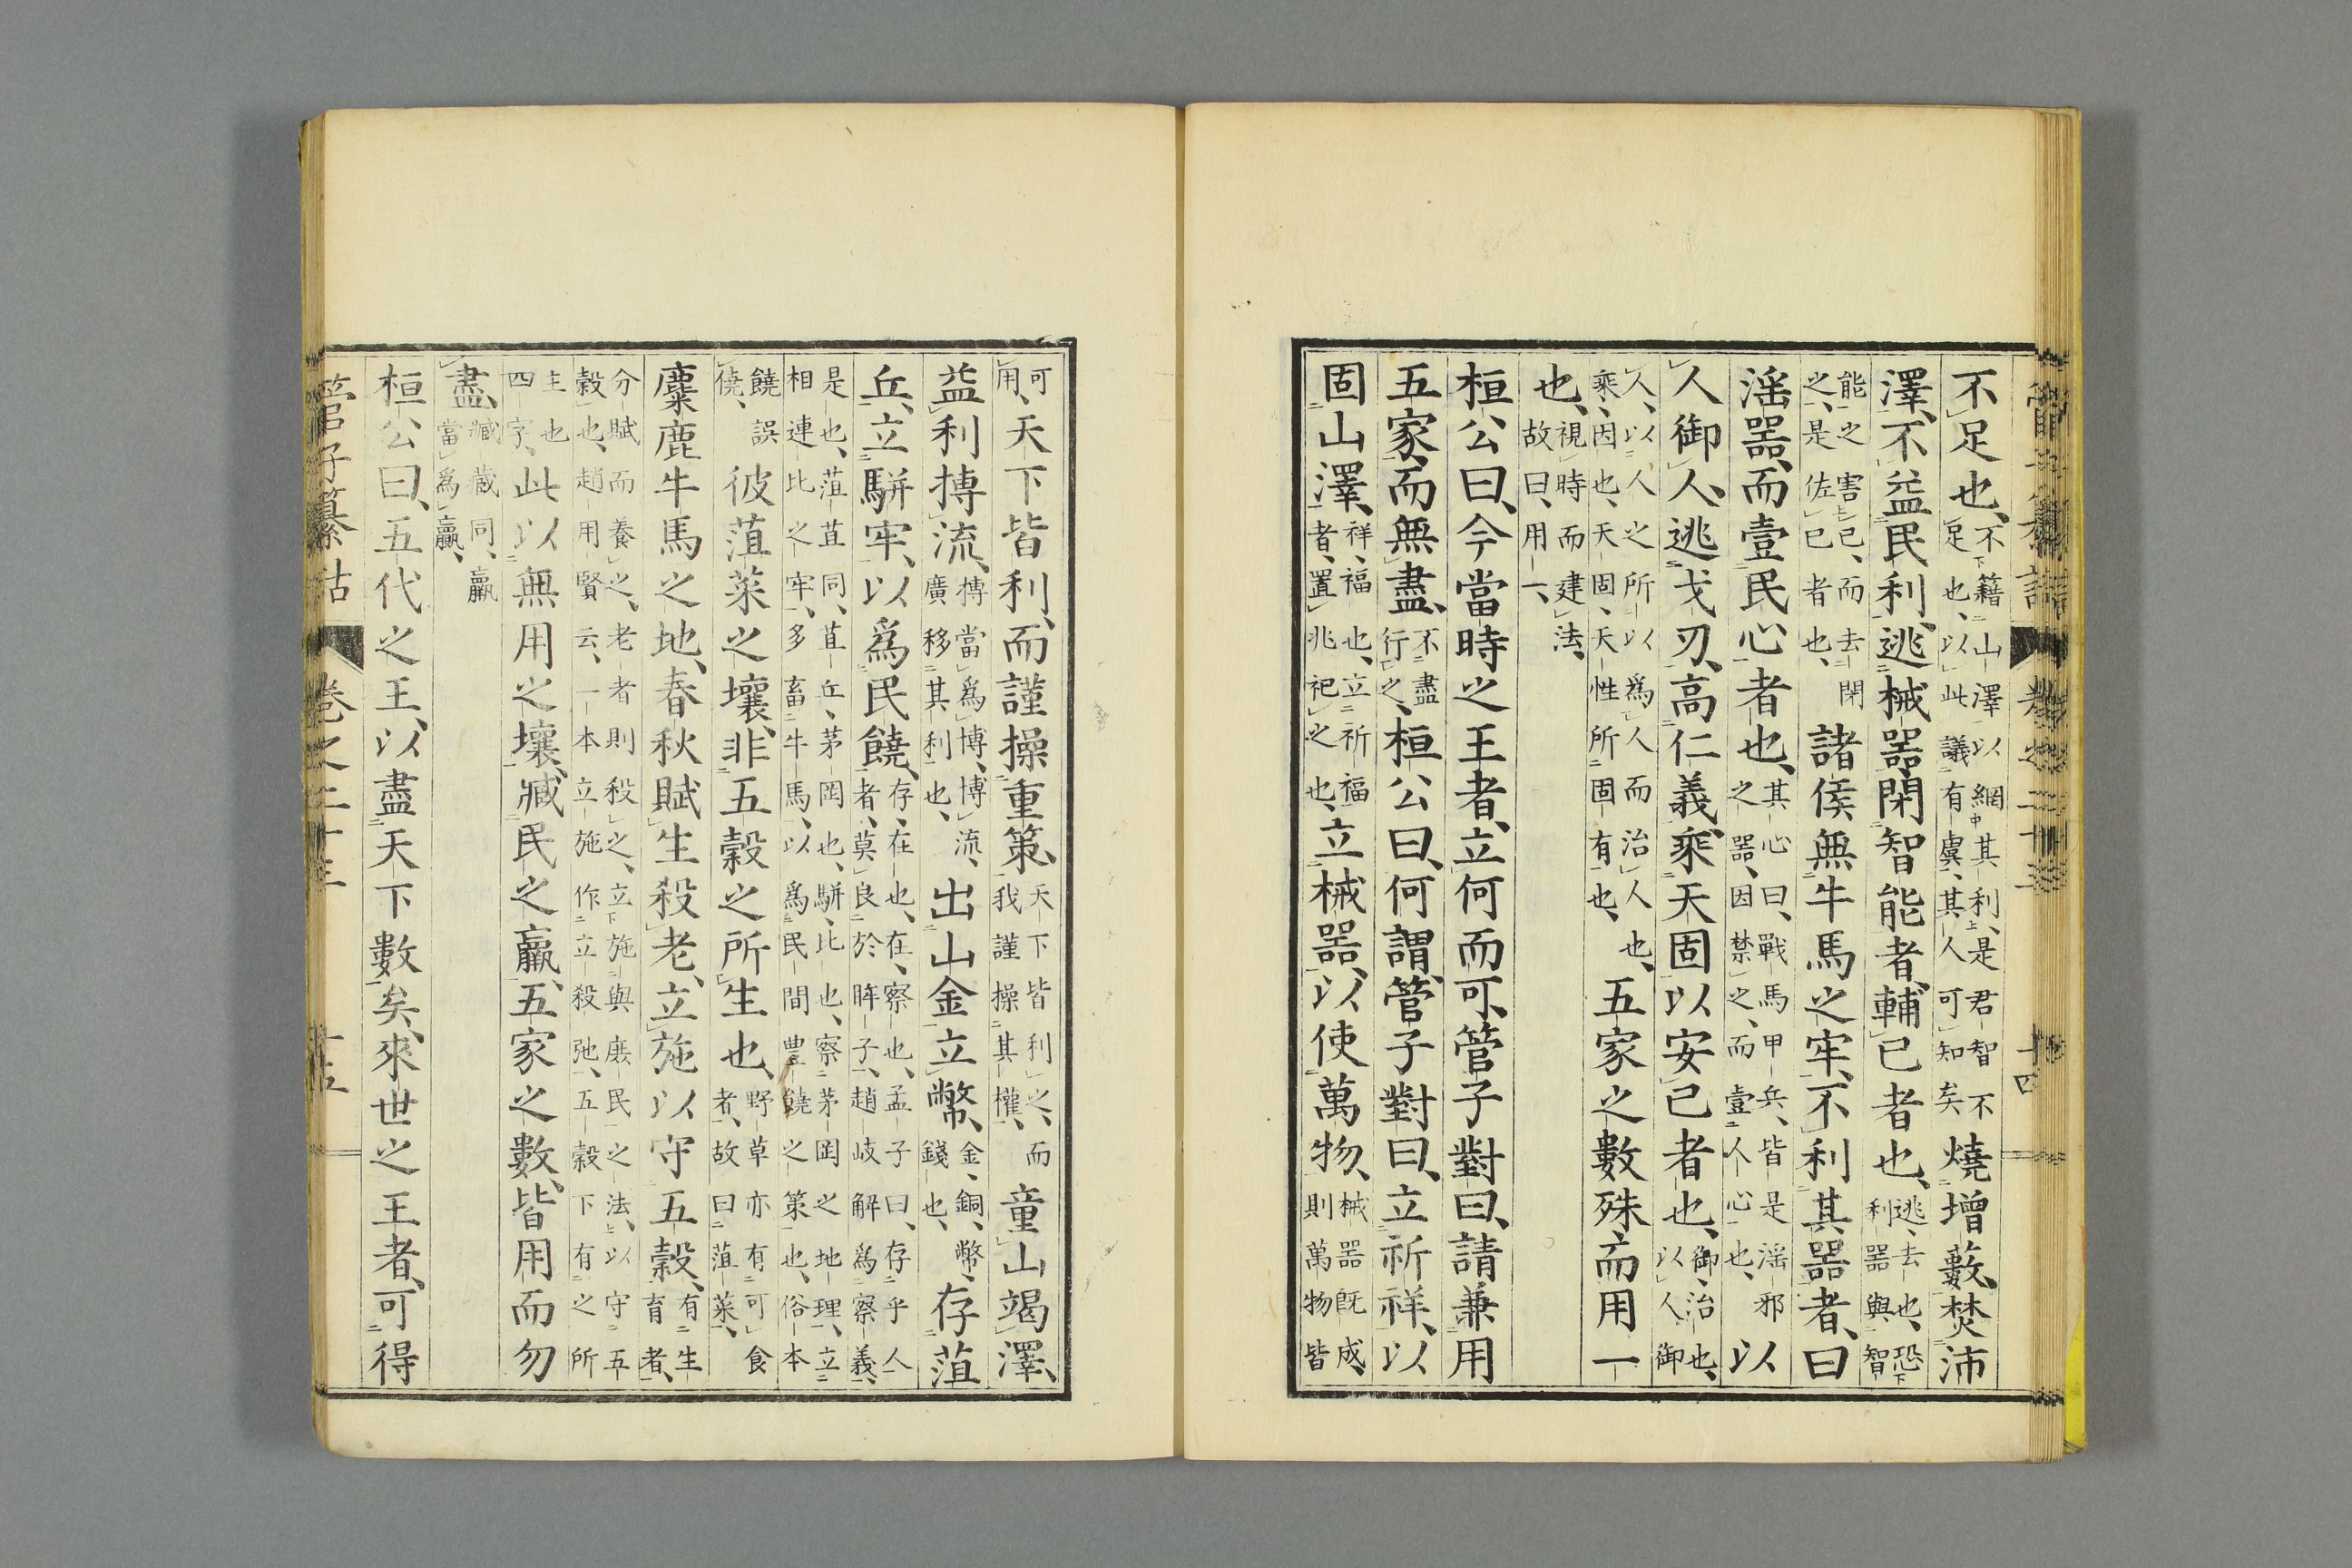 管子纂詁 卷之二十三 十四
不足也、不籍山澤以網其利、是君智不足也、以此議有虞、其人可知矣燒增藪、焚沛
澤、不益民利、逃械器、閉智能者、輔己者也、逃、去也、恐利器與智
能之害己、而去閉之、是佐己者也、諸侯無牛馬之牢、不利其器者、曰
淫器、而壹民心者也、其心曰、戰馬甲兵、皆是淫邪之器、因禁之、而壹人心也、以
人御人、逃戈刃、高仁義、乘天固以安己者也、御、治也、以人御
人、以人之所以爲人而治人也、乘、因也、天固、天性所固有也、五家之數殊而用一
也、視時而建法、故曰、用一、
桓公曰、今當時之王者、立何而可、管子對曰、請兼用
五家、而無盡、不盡行之、桓公曰、何謂、管子對曰、立祈祥、以
固山澤、祥、福也、立祈福者、置兆祀之之也、立械器、以使萬物、械器旣成、則萬物皆
可用、天下皆利、而謹操重策、天下皆利之、而我謹操其權、童山竭澤、
益利搏流、榑當爲博、博流、廣移其利也、出山金立幣、金、銅、幣、錢也、存菹
丘、立駢牢、以爲民饒、存、在也、在、察也、孟子曰、存乎人者、莫良於眸子、趙岐解爲察義、
是也、菹苴同、苴丘、茅罔也、駢、比也、察茅罔之地理、立相連比之牢、多畜牛馬、以爲民間豐饒之策也、俗本
饒誤僥、彼菹菜之壤、非五穀之所生也、野草亦有可食者、故曰菹菜、
麋鹿牛馬之地、春秋賦生殺老、立施以守五穀、有生育者、
分賦而養之、老者則殺之、立施與廛民之法、以守五穀也、趙用賢云、一本立施作立殺弛、五穀下有之所
主也四字、此以無用之壤、臧民之贏、五家之數、皆用而勿
盡、臧藏同、贏當爲贏、
桓公曰、五代之王、以盡天下數矣、來世之王者、可得
管子纂詁 卷之二十三 十五